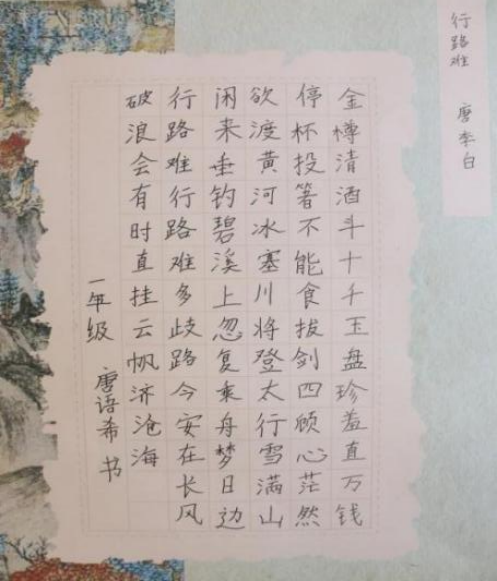 行路难 唐 李白
金樽清酒斗十千玉盘珍羞直万钱
停杯投箸不能食拔剑四顾心茫然
欲渡黄河冰塞川将登太行雪满山
闲来垂钓碧溪上忽复乘舟梦日边
行路难行路难多歧路今安在长风
破浪会有时直挂云帆济沧海
一年级 唐语希 书